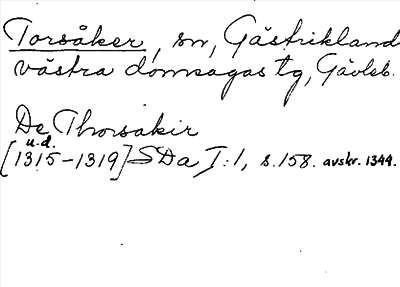 Torsåker, sn, Gästrikland
västra domsagas tg, Gävleb.
De Thorsakir
u.d.
[1315-1319] SDa I:1, s.158. avskr. 1344.